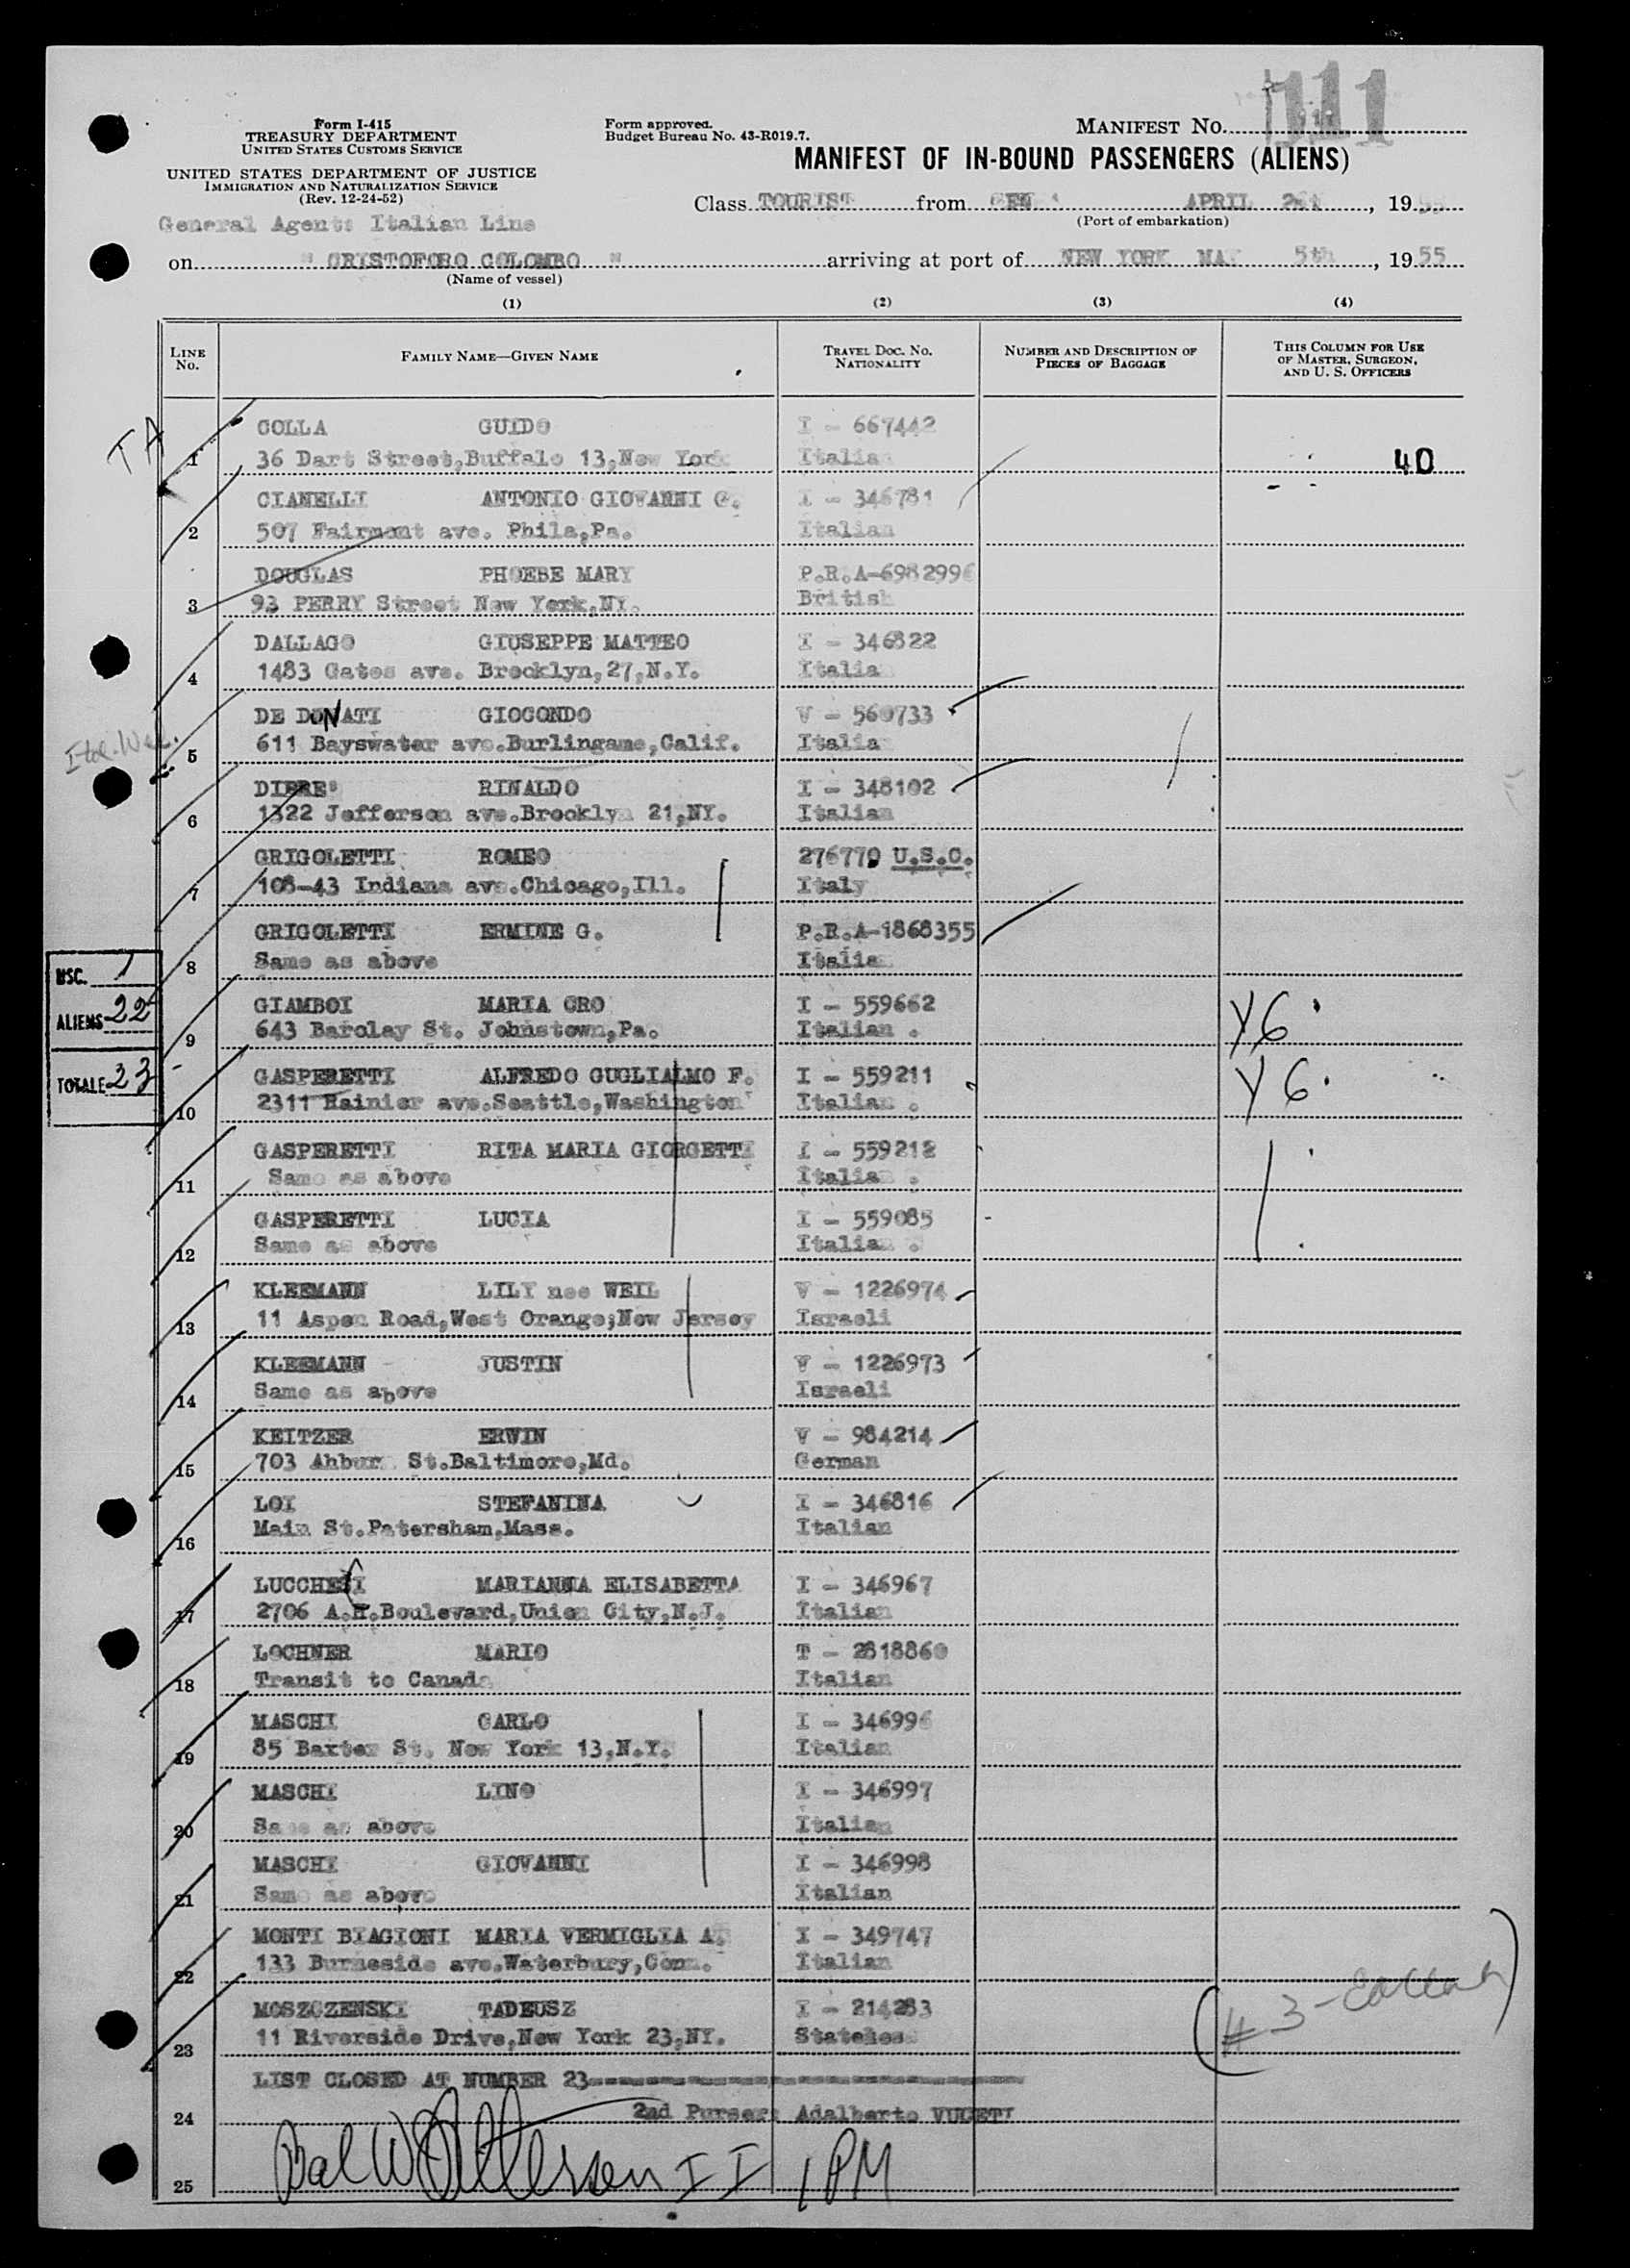 111
Form I-415
TREASURY DEPARTMENT
UNITED STATES CUSTOMS SERVICE
Form approved.
Budget Bureau No. 43-R019.7.
MANIFEST NO.
MANIFEST OF IN-BOUND PASSENGERS (ALIENS)
UNITED STATES DEPARTMENT OF JUSTICE
IMMIGRATION AND NATURALIZATION SERVICE
(Rev. 12-24-52)
Class TOURIST from APRIL , 1955
(Port of embarkation)
General Agent: Italian Line
on " CRISTOFORO COLOMBO " arriving at port of NEW YORK MAY 5th , 1955
(Name of vessel)
(1) (2) (3) (4)
LINE No.
FAMILY NAME—GIVEN NAME
TRAVEL DOC. NO. NATIONALITY
NUMBER AND DESCRIPTION OF PIECES OF BAGGAGE
THIS COLUMN FOR USE OF MASTER, SURGEON, AND U. S. OFFICERS
TA
COLLA GUIDO I - 667442
1 36 Dart Street,Buffalo 13,New York Italian 40
CIANELLI ANTONIO GIOVANNI G. I - 346781
2 507 Fairmont ave. Phila,Pa. Italian
DOUGLAS PHOEBE MARY P.R.A-6982996
3 93 PERRY Street New York,NY. British
DALLAGO GIUSEPPE MATTEO I - 346822
4 1483 Gates ave. Brooklyn,27,N.Y. Italia
DE DONATI GIOCONDO V - 560733
5 611 Bayswater ave.Burlingame,Calif. Italia
DIPRE' RINALDO I - 348102
6 1322 Jefferson ave.Brooklyn 21,NY. Italian
GRIGOLETTI ROMEO 276770 U.S.C.
7 108-43 Indiana ave.Chicago,Ill. Italy
GRIGOLETTI ERMINE G. P.R.A-1868355
8 Same as above Italia
USC. 1
ALIENS 22
TOTALE 23
GIAMBOI MARIA ORO I - 559662
9 643 Barclay St. Johnstown,Pa. Italian . Y6
GASPERETTI ALFREDO GUGLIALMO F. I - 559211
10 2311 Rainier ave.Seattle,Washington Italian . Y6
GASPERETTI RITA MARIA GIORGETTI I - 559212
11 Same as above Italia .
GASPERETTI LUCIA I - 559085
12 Same as above Italia .
KLEEMANN LILY nee WEIL V - 1226974
13 11 Aspen Road,West Orange;New Jersey Israeli
KLEEMANN JUSTIN V - 1226973
14 Same as above Israeli
KEITZER ERWIN V - 984214
15 703 St.Baltimore,Md. German
LOI STEFANINA I - 346816
16 Main St.Patersham,Mass. Italian
LUCCHESI MARIANNA ELISABETTA I - 346967
17 2706 A.H.Boulevard,Union City,N.J. Italian
LOCHNER MARIO T - 2818860
18 Transit to Canada Italian
MASCHI CARLO I - 346996
19 85 Baxter St. New York 13,N.Y. Italian
MASCHI LINO I - 346997
20 Same as above Italian
MASCHI GIOVANNI I - 346998
21 Same as above Italian
MONTI BIAGIONI MARIA VERMIGLIA A. I - 349747
22 133 Burneside ave.Waterbury,Conn. Italian
MOSZCZENSKI TADEUSZ I - 214283
23 11 Riverside Drive,New York 23,NY. Stateless # 3 -
LIST CLOSED AT NUMBER 23
24 2nd Purser: Adalberto
25 II 1 PM